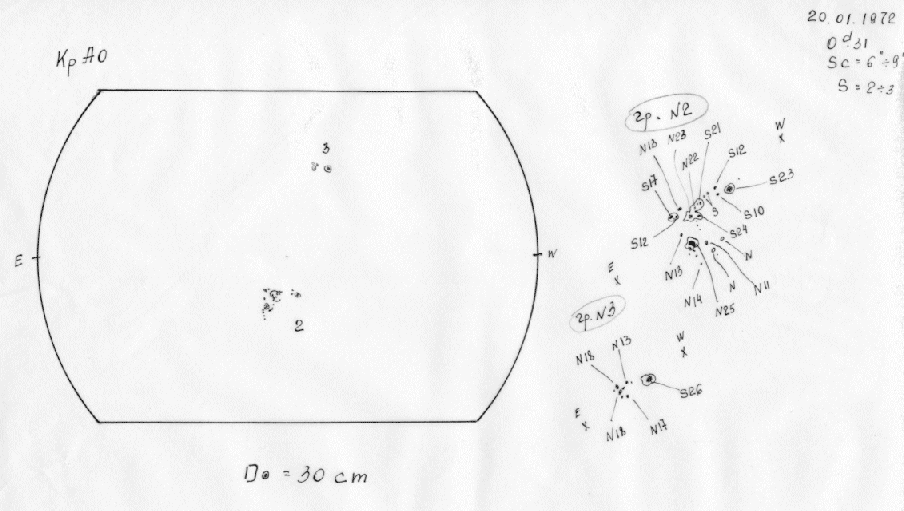 20.01.1972
0ᵈ.31
Sc = 6"÷9"
S = 2÷3
Кр АО
3
E
W
2
D⊙ = 30 cm
гр. N2
W
x
N13
N23
S21
N22
S12
S17
S23
S10
3
S12
S24
N
N13
N11
N
N14
N25
E
x
гр. N3
W
x
N18
N13
S26
E
x
N18
N17